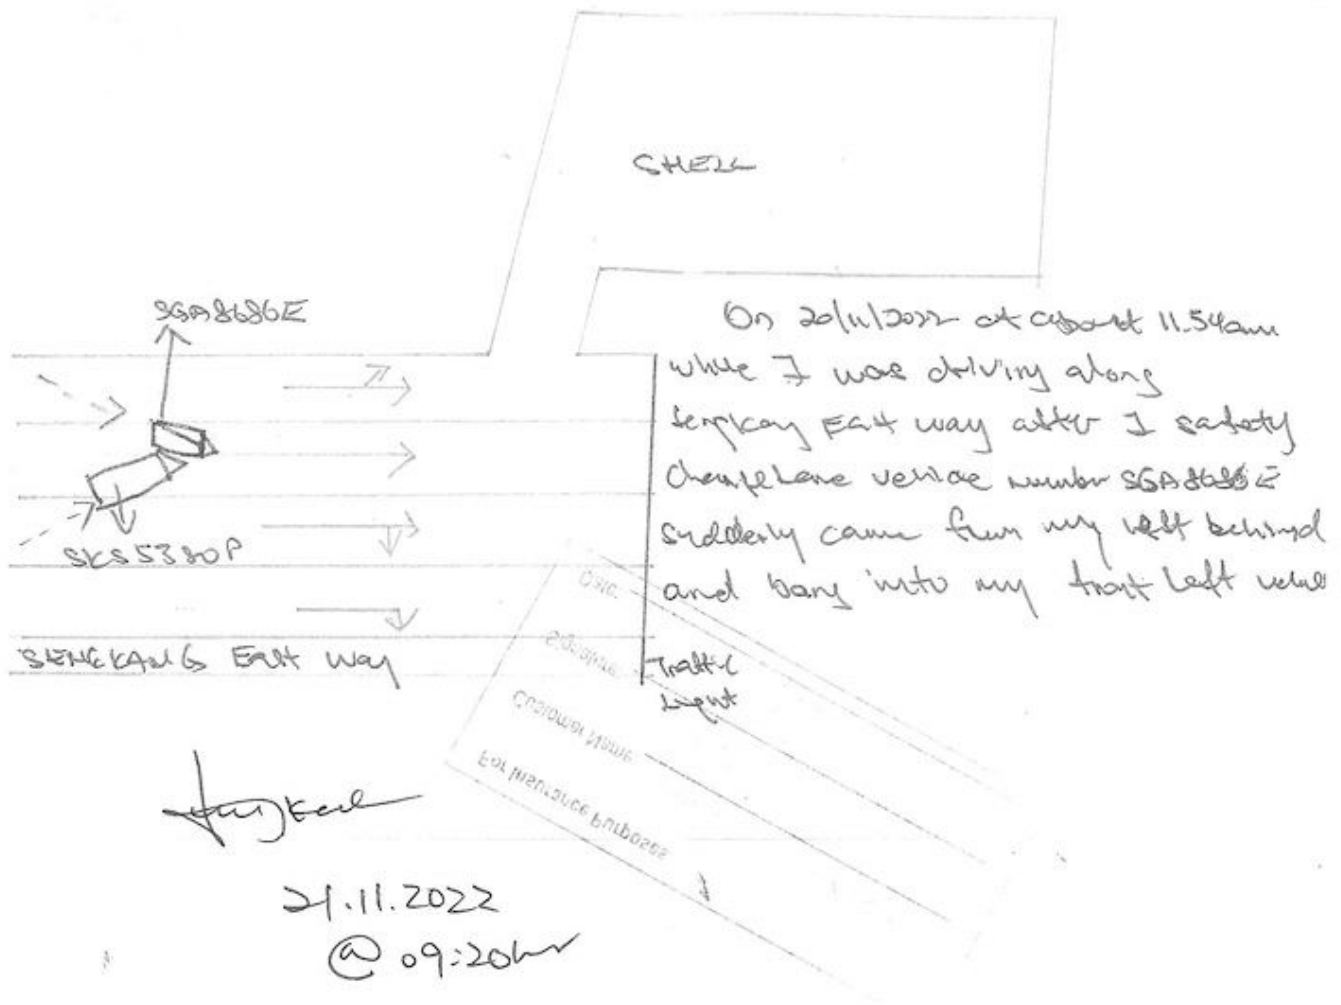 SHELL
SGA8686E
On 20/11/2022 at about 11.54am
while I was driving along
Sengkang East way after I safety
Change lane vehicle number SGA8686E
suddenly came from my left behind
and bang into my front left
SKS5380P
SENGKANG East Way
Traffic
Light
Date:
Signature
Customer Name
For Insurance Purposes
21.11.2022
@ 09:20hr